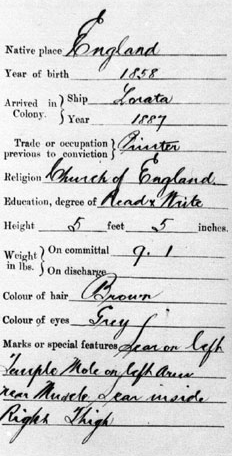 Native place England
Year of birth 1858
Arrived in Colony. } Ship Lorata
Year 1887
Trade or occupation previous to conviction } Printer
Religion Church of England.
Education, degree of Read & Write
Height 5 feet 5 inches.
Weight in lbs. { On committal 9. 1
On discharge
Colour of hair Brown
Colour of eyes Grey
Marks or special features Scar on left
Temple Mole on left Arm
near Muscle Scar inside
Right Thigh